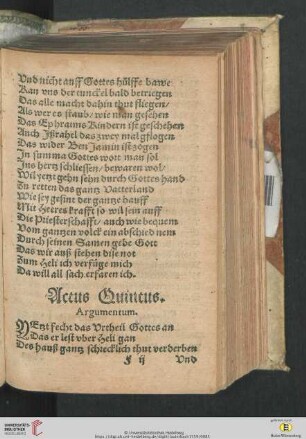 Vnd nicht auff Gottes hülffe bawe
Kan vns der tunckel bald betriegen
Das alle macht dahin thut fliegen/
Als wer es staub/ wie man gesehen
Das Ephraims Kindern ist geschehen
Auch Jsrahel das zwey mal geflogen
Das wider Ben Jamin ist zogen
Jn summa Gottes wort man sol
Jns hertz schliessen/ bewaren wol/
Wil yetzt gehn sehn durch Gottes hand
Zu retten das gantz Vatterland
Wie sey gesint der gantze hauff
Mit Heeres krafft so wil sein auff
Die Priesterschafft/ auch wie bequem
Vom gantzen volck ein abschied nem
Durch seinen Samen gebe Gott
Das wir auß stehen dise not
Zum Heli ich verfüge mich
Da will all sach erfaren ich.
Actus Quintus.
Argumentum.
YEtzt fecht das Vrtheil Gottes an
Das er lest vber Heli gan
Des hauß gantz schrecklich thut verderben
F ij Vnd
UNIVERSITÄTS-
BIBLIOTHEK
HEIDELBERG
© Universitätsbibliothek Heidelberg